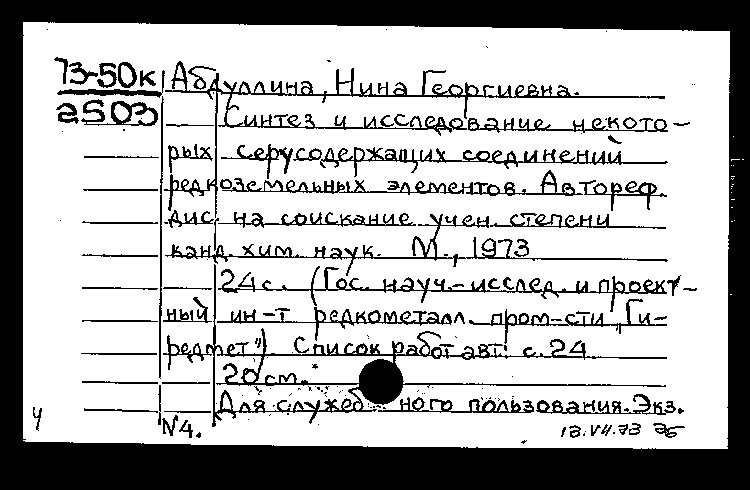 73-50к Абдуллина, Нина Георгиевна.
2503 Синтез и исследование некото-
рых серусодержащих соединений
редкоземельных элементов. Автореф.
дис. на соискание учен. степени
канд. хим. наук. М., 1973
24 с. (Гос. науч.-исслед. и проект-
ный ин-т редкометалл. пром-сти „Ги-
редмет") Список работ авт. с. 24
20 см.
Для служебного пользования. Экз.
N4.
13.VII.73